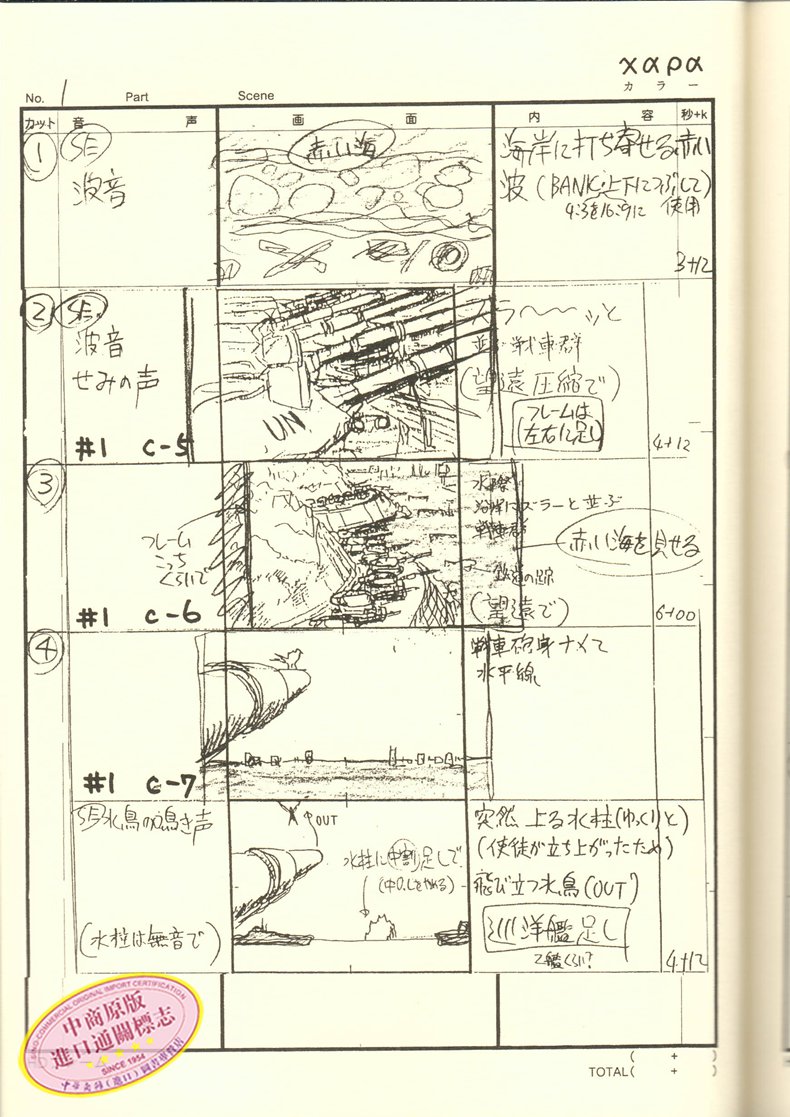 χαρα
カラー
No. 1 Part Scene
カット 音 声 画 面 内 容 秒+k
1
SE
波音
赤い海
海岸に打ち寄せる赤い
波(BANK.上下につぶして)
4:3を16:9に 使用
3+12
2
SE.
波音
せみの声
#1 C-5
UN
ズラ〜〜ッと
並ぶ戦車群
(望遠圧縮で)
フレームは
左右に足し
4+12
3
フレーム
こっち
くらいで
#1 C-6
沿岸にズラーと並ぶ
戦車群
赤い海を見せる
鉄道の跡
(望遠で)
6+00
4
#1 C-7
戦車砲身ナメて
水平線
SE水鳥の鳴き声
(水柱は無音で)
OUT
水柱に中割足しで
突然 上る水柱(ゆっくりと)
(使徒が立ち上がったため)
飛び立つ水鳥(OUT)
洋艦足し
2艦くらい?
4+12
( + )
TOTAL( + )
SINO-COMMERCIAL ORIGINAL IMPORT CERTIFICATION
中商原版
進口通關標志
SINCE 1954